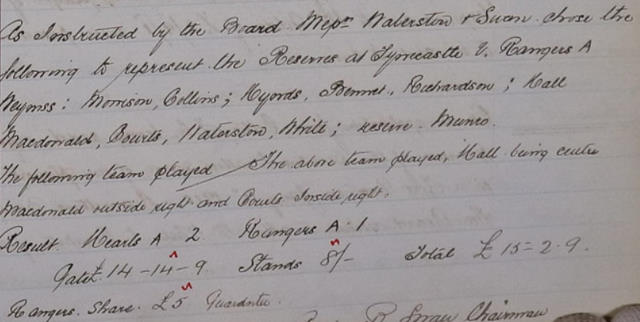 As Instructed by the Board Messrs Waterston & Swan chose the
following to represent the Reserves at Tynecastle V. Rangers A
Weymss: Morrison, Collins; Hyords, Bennet, Richardson; Hall
Macdonald, Bowls, Waterston, White; reserve. Munro.
The following team played The above team played, Hall being centre
Macdonald outside right and Bowls Inside right.
Result. Hearts A 2 Rangers A. 1
Gate £14-14-9 Stands 8/- Total £15-2-9.
Rangers. Share. £5 Guarantee.
R. Swan Chairman